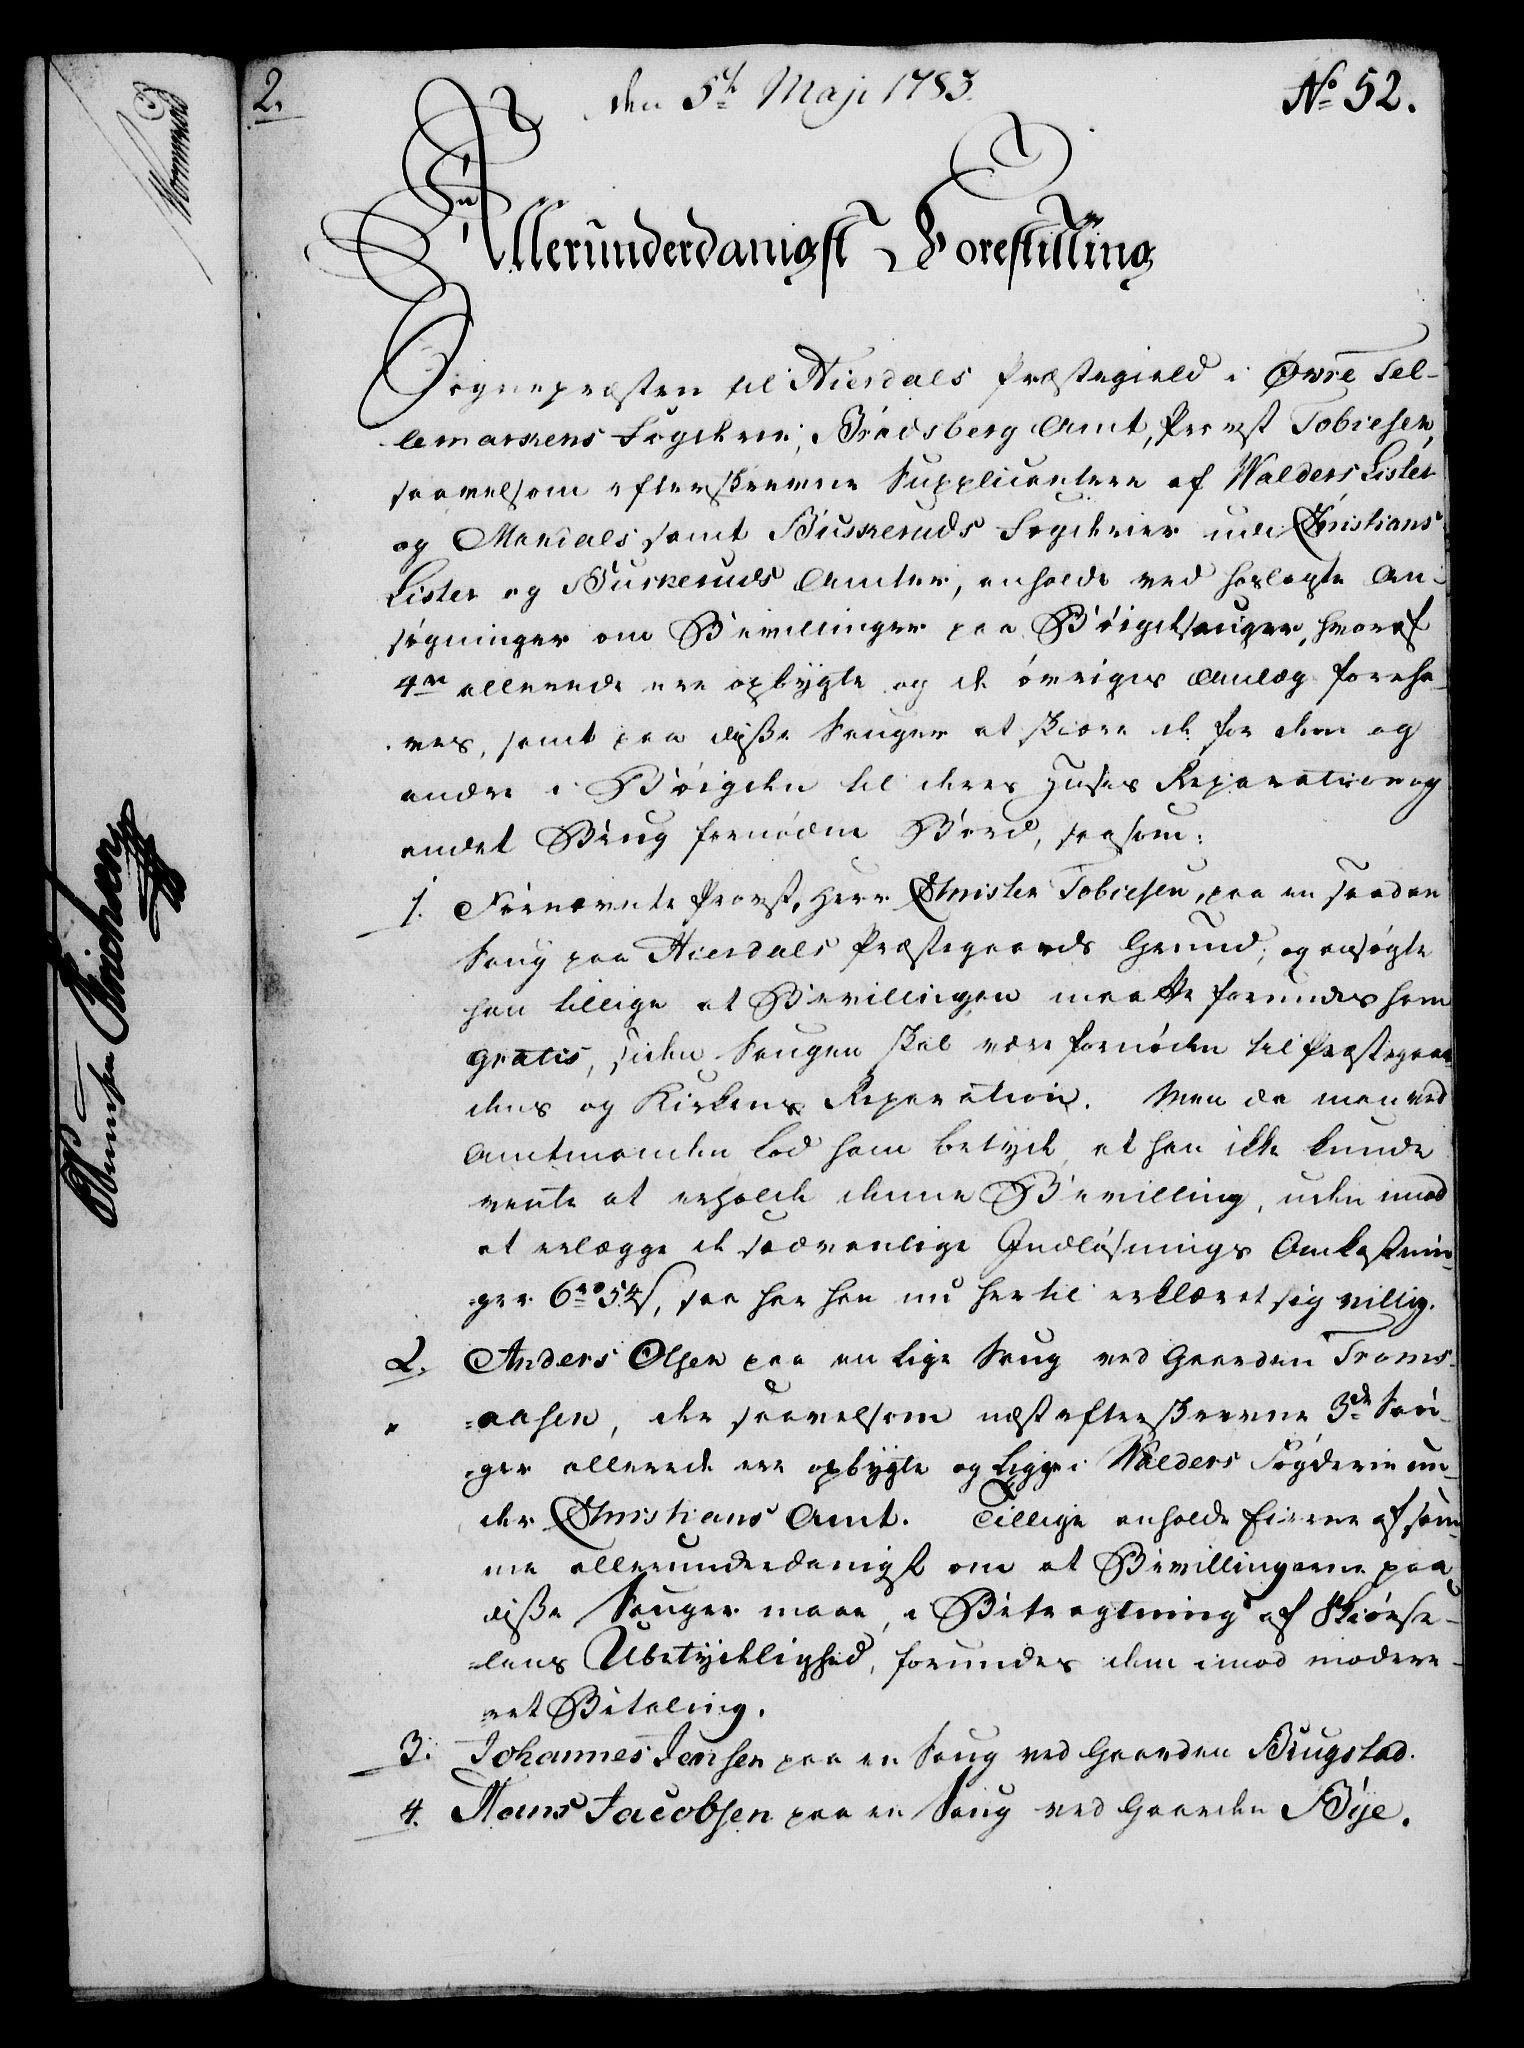 2.
den 5te Maji 1783.
No 52.
Allerunderdanigst Forestilling
Sognepræsten til Hierdals Præstegield i Øvre Tel-
lemarkens Fogderie, Bradsberg Amt, Provst Tobiesen,
saavelsom efterskrevne Supplicantere af Walders Lister
og Mandals samt Buskeruds Fogderier udi Christians
Lister og Buskeruds Amter, anholde ved hoslagte An-
søgninger om Bevillinger paa Bøigdesauger, hvoraf
4re allerede ere opbygte og de øvriges Anlæg foreha-
ves, samt paa disse Sauger at skiære de for dem og
andre i Bøigden til deres Huses Reparation og
andet Brug fornødne Bord, saasom:
1. Førnævnte Provst, Herr Christen Tobiesen, paa en saadan
Saug paa Hierdals Præstegaards Grund; og ansøgte
han tillige at Bevillingen maatte forundes ham
gratis, siden Saugen skal være fornøden til Præstegaar-
dens og Kirkens Reparation. Men da man ved
Amtmanden lod ham betyde, at han ikke kunde
vente at erholde denne Bevilling, uden imod
at erlægge de sædvanlige Indløsnings Omkostnin-
ger 6rd 54s, saa har han nu hertil erklæret sig villig.
2. Anders Olsen paa en lige Saug ved Gaarden Troms-
aasen, der saavelsom næstefterskrevne 3de Sau-
ger allerede ere opbygte og ligge i Walders Fogderie un-
der Christians Amt. Tillige anholde Eierne af sam-
me allerunderdanigst om at Bevillingerne paa
disse Sauger maae, i Betragtning af Skiørse-
lens Ubetydelighed, forundes dem imod modere-
ret Betaling.
3. Johannes Jensen paa en Saug ved Gaarden Brugstad.
4. Hans Jacobsen paa en Saug ved Gaarden Bye.